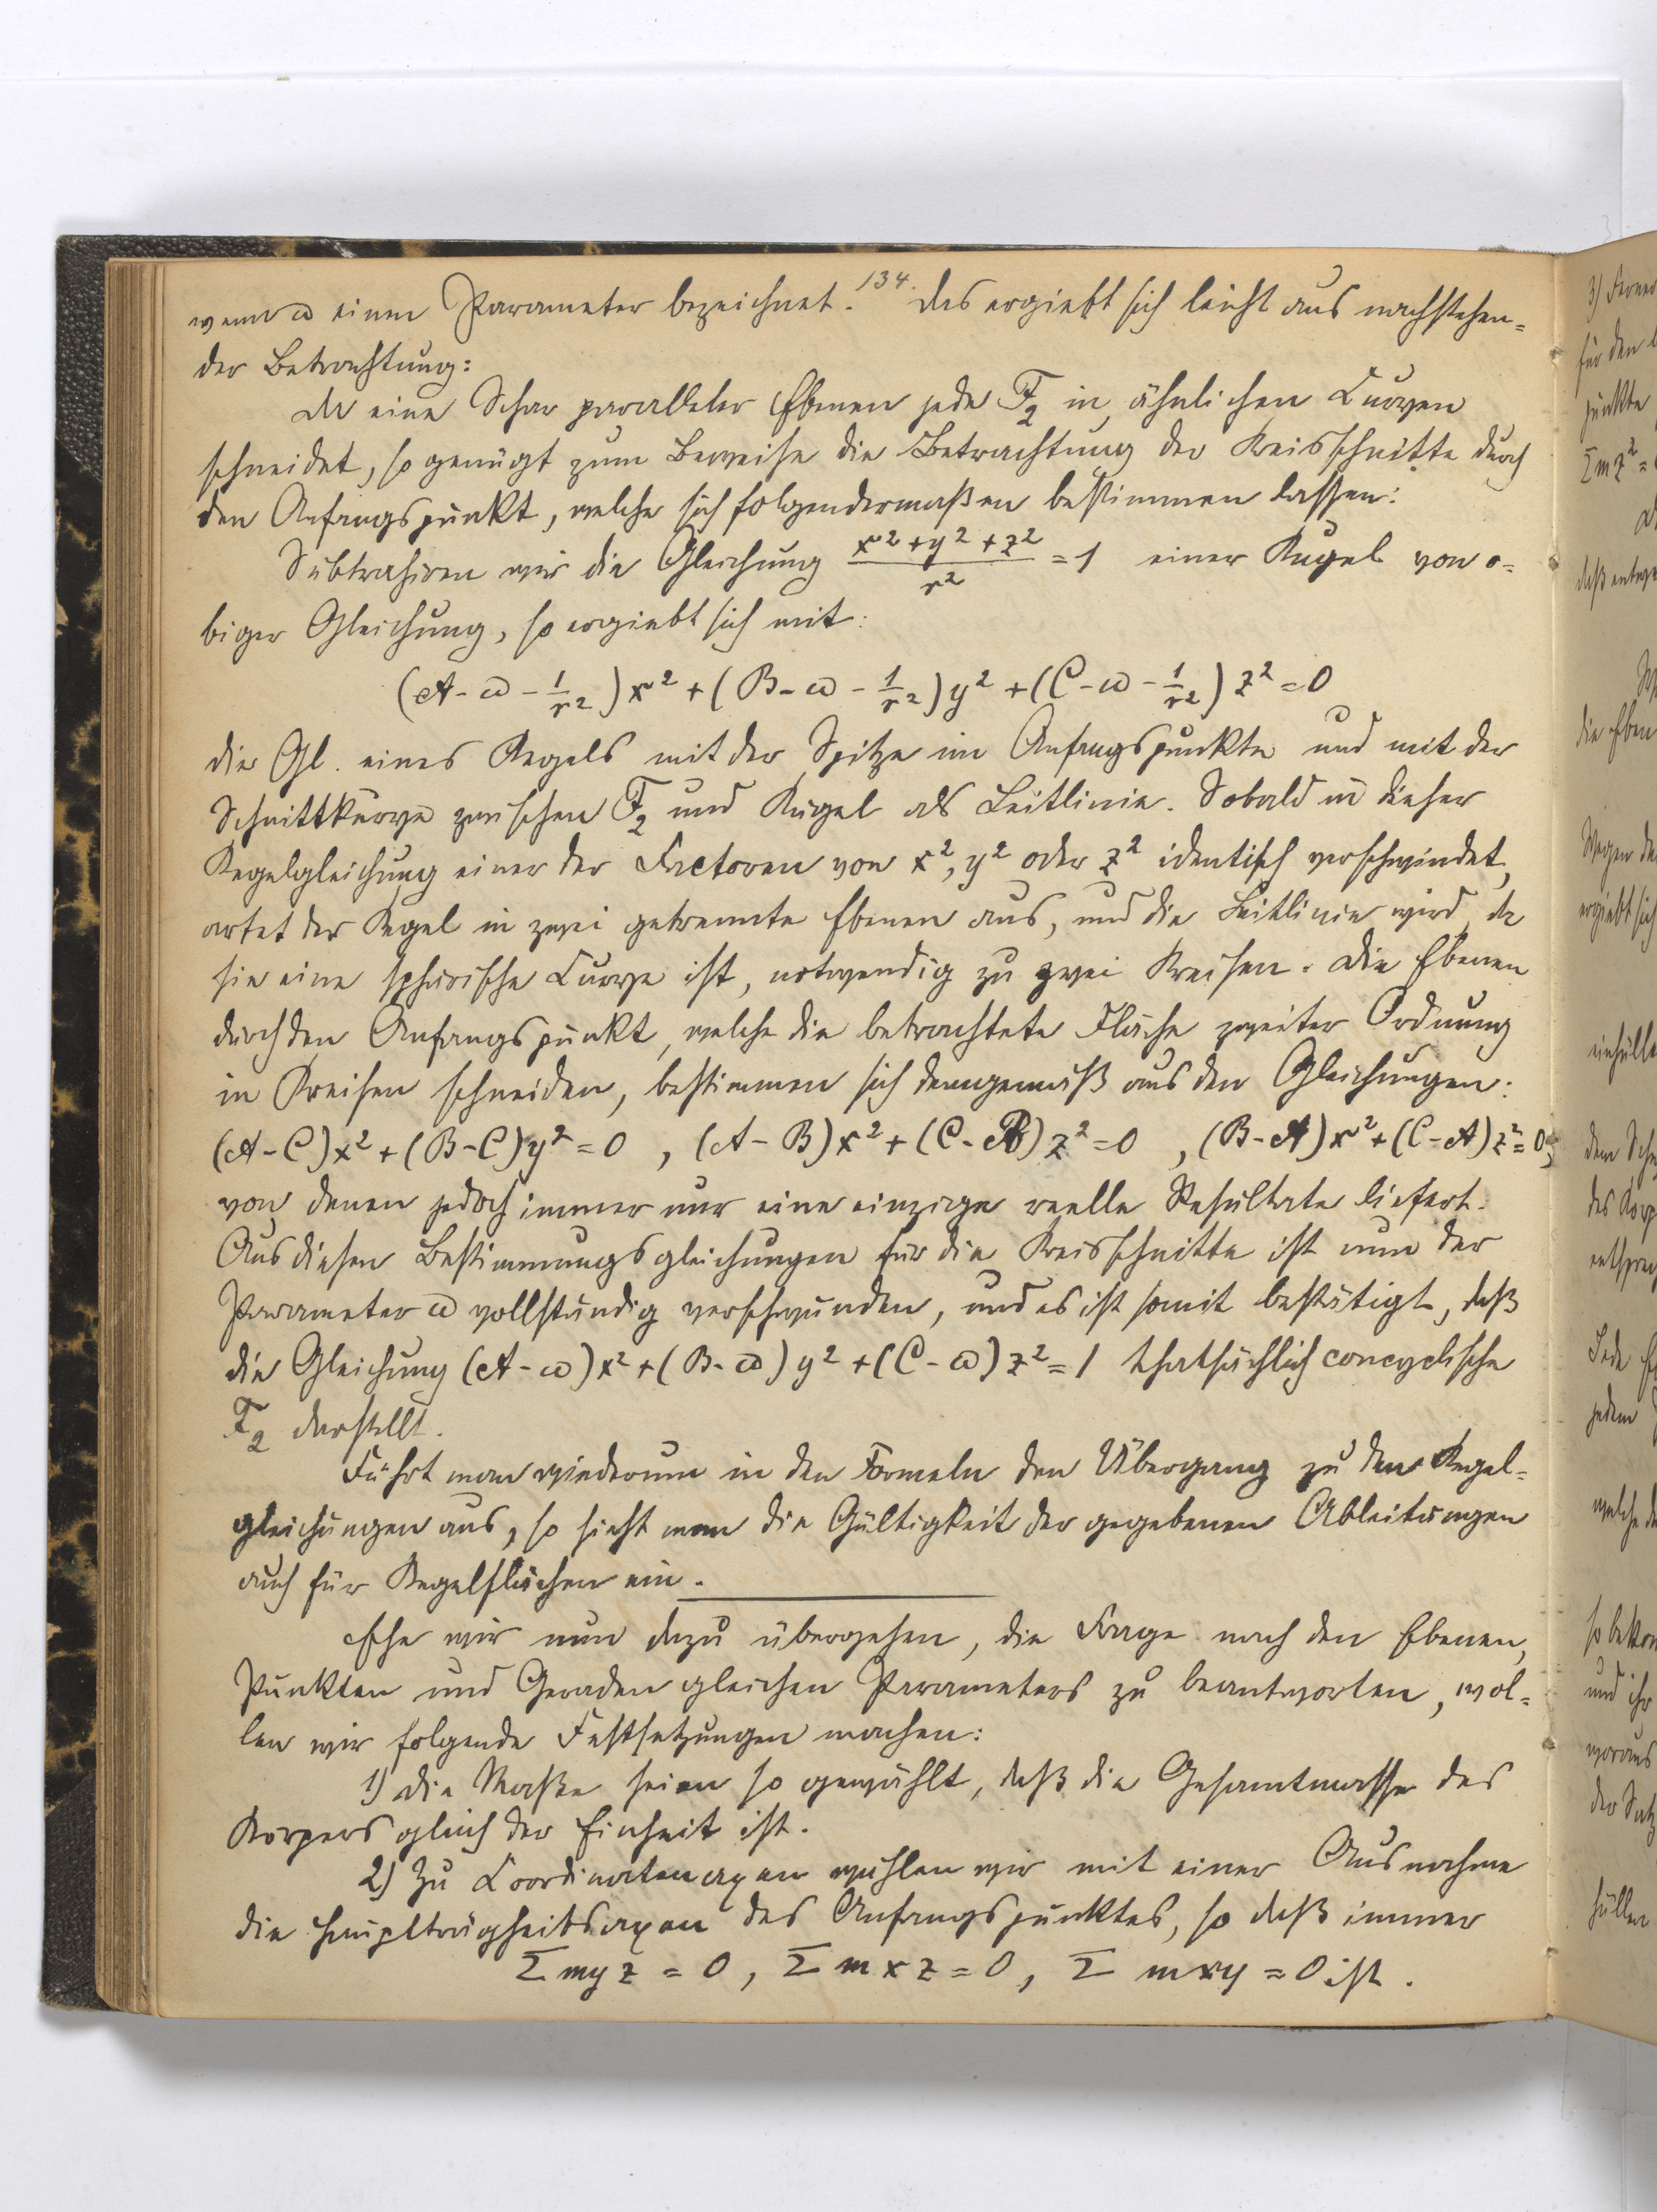 134.
wenn ω einen Parameter bezeichnet. Das ergiebt sich leicht aus nachstehen=
der Betrachtung:
Da eine Schar paralleler Ebenen jede F₂ in ähnlichen Curven
schneidet, so genügt zum Beweise die Betrachtung der Kreisschnitte durch
den Anfangspunkt, welche sich folgendermaßen bestimmen lassen:
Subtrahiren wir die Gleichung (x²+y²+z²)/r² = 1 einer Kugel von o=
biger Gleichung, so ergiebt sich mit:
(A-ω-1/r²)x² + (B-ω-1/r²)y² + (C-ω-1/r²)z² = 0
die Gl. eines Kegels mit der Spitze im Anfangspunkte und mit der
Schnittkurve zwischen F₂ und Kugel als Leitlinie. Sobald in dieser
Kegelgleichung einer der Factoren von x², y² oder z² identisch verschwindet,
artet der Kegel in zwei getrennte Ebenen aus, und die Leitlinie wird, da
sie eine sphärische Curve ist, notwendig zu zwei Kreisen. Die Ebenen
durch den Anfangspunkt, welche die betrachtete Fläche zweiter Ordnung
in Kreisen schneiden, bestimmen sich demgemäß aus den Gleichungen:
(A-C)x²+(B-C)y²=0 , (A-B)x²+(C-B)z²=0 , (B-A)x²+(C-A)z²=0,
von denen jedoch immer nur eine einzige reelle Resultate liefert.
Aus diesen Bestimmungsgleichungen für die Kreisschnitte ist nun der
Parameter ω vollständig verschwunden, und es ist somit bestätigt, daß
die Gleichung (A-ω)x²+(B-ω)y²+(C-ω)z²=1 thatsächlich concyclische
F₂ darstellt.
Führt man wiederum in den Formeln den Übergang zu den Kegel=
gleichungen aus, so sieht man die Gültigkeit der gegebenen Ableitungen
auch für Kegelflächen ein.
Ehe wir nun dazu übergehen, die Frage nach den Ebenen,
Punkten und Geraden gleichen Parameters zu beantworten, wol=
len wir folgende Festsetzungen machen:
1) Die Maße seien so gewählt, daß die Gesamtmasse des
Körpers gleich der Einheit ist.
2) Zu Coordinatenaxen wählen wir mit einer Ausnahme
die Hauptträgheitsaxen des Anfangspunktes, so daß immer
Σmyz = 0, Σmxz = 0, Σmxy = 0 ist.